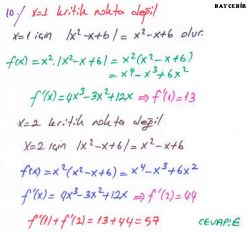 BAYCEBİR
10/ x=1 kritik nokta değil
x=1 için |x²-x+6| = x²-x+6 olur.
f(x)=x².|x²-x+6| = x²(x²-x+6)
= x⁴-x³+6x²
f'(x)=4x³-3x²+12x ⇒ f'(1)=13
x=2 kritik nokta değil
x=2 için |x²-x+6| = x²-x+6
f(x)=x²(x²-x+6)=x⁴-x³+6x²
f'(x)=4x³-3x²+12x ⇒ f'(2)=44
f'(1)+f'(2)=13+44=57 CEVAP:E